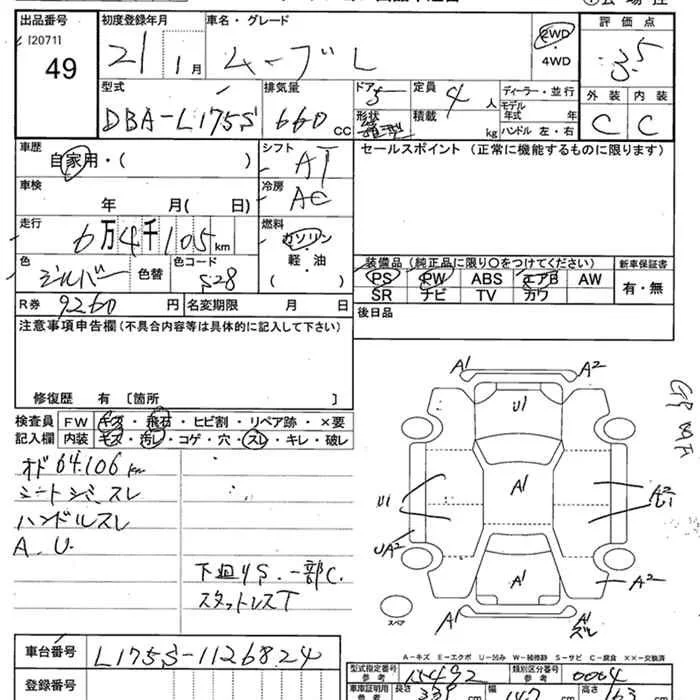 出品番号 初度登録年月 車名・グレード 評価点
I20711
49
21年 1月 ムーブL 2WD ・ 4WD 3.5
型式 排気量 ドア 定員 ディーラー・並行 外装 内装
DBA-L175S 660cc 5 4人 モデル年式 年 C C
形状 積載 kg ハンドル 左・右
車歴 自家用・( ) シフト AT セールスポイント (正常に機能するものに限ります)
車検 年 月( 日) 冷房 AC
走行 6万4千105km 燃料 ガソリン
軽・油
( )
色 シルバー 色替 色コード S28
装備品 (純正品に限り○をつけてください) 新車保証書
PS PW ABS エアB AW 有・無
SR ナビ TV カワ
R券 9260円 名変期限 月 日 後日品
注意事項申告欄 (不具合内容等は具体的に記入して下さい)
修復歴 有 〔箇所 〕
検査員 FW キズ・飛石・ヒビ割・リペア跡・×要
記入欄 内装 キズ・汚レ・コゲ・穴・スレ・キレ・破レ
オド64.106km
シートシミ スレ
ハンドルスレ
A.U.
下廻りS.一部C.
スタットレスT
A1 A2
U1
A1
U1 A2
UA2
A1 A2
A1 A1
スレ
スペア
A-キズ E-エクボ U-凹み W-補修跡 S-サビ C-腐食 XX-交換済
車台番号 L175S-1126824
型式指定番号 参考 15492 類別区分番号 参考 0004
登録番号 車庫証明用 参考 長さ 339cm 幅 147cm 高さ 163cm